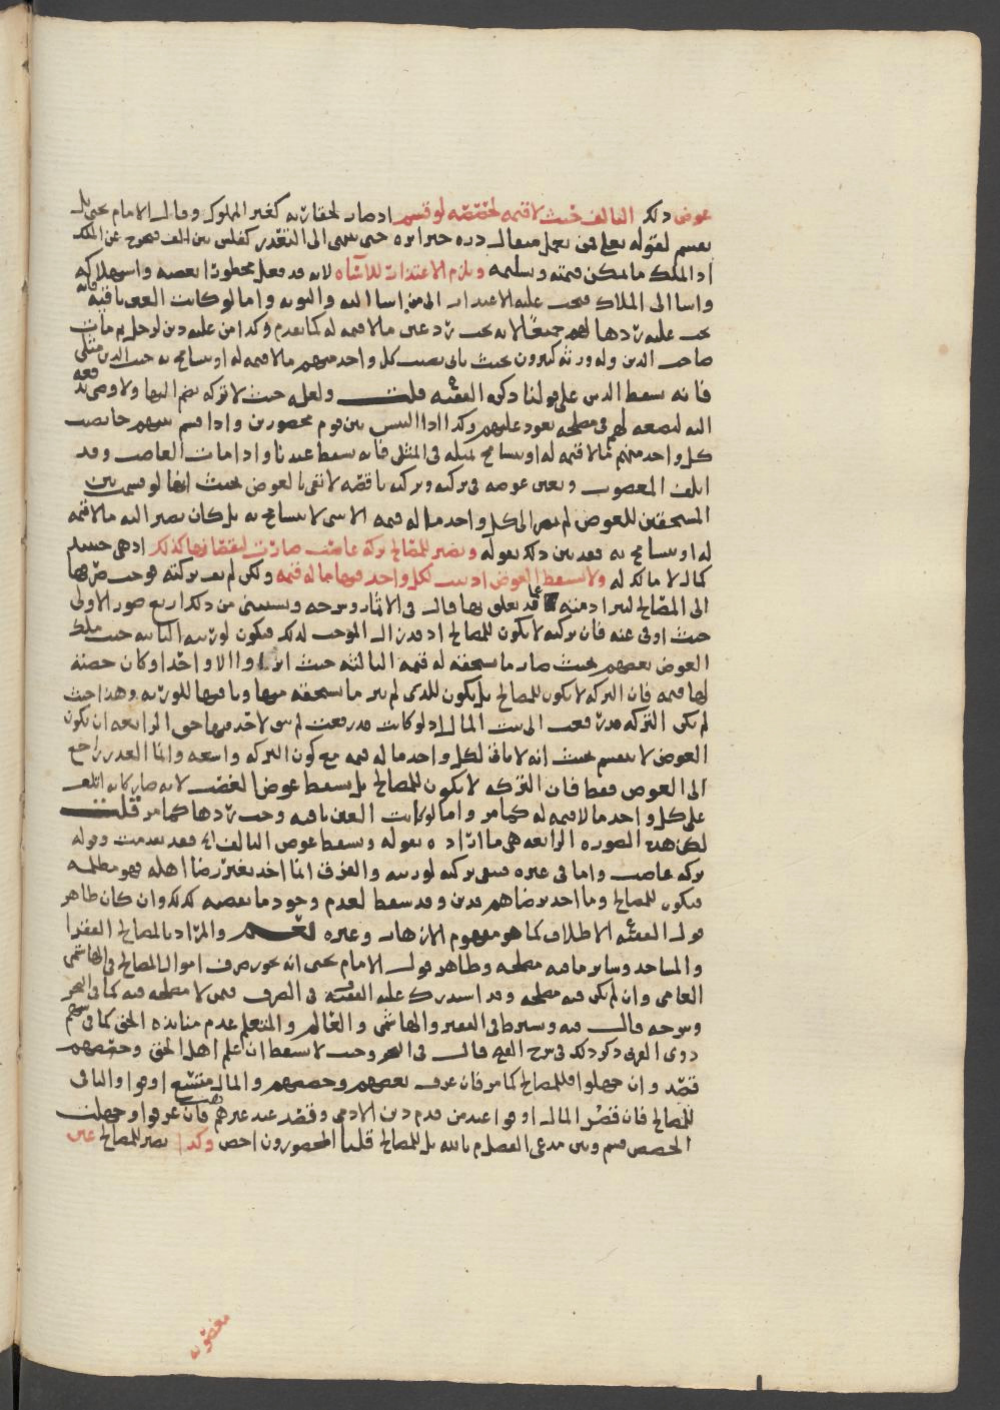 عوض ذلك التالف حيث لا قيمة لحصصه لو قسم اذ صار لحقارته كغير المملوك وقال الامام يحيى بل
يقسم لقوله تعالى فمن يعمل مثقال ذرة خيرا يره حتى ينتهي الى التقدير كفلس بين الف فيخرج عن الملك
اذ الملك ما يمكن قيمته وتسليمه ويلزم الاعتذار للاساه لانه قد فعل محظورا بغصبه واستهلاكه
واسا الى الملاك فيجب عليه الاعتذار الى من اسا اليه والتوبة واما لو كانت العين باقية فانه
يجب عليه ردها لهم جميعا لانه يجب رد عين ما لا قيمة له كما تقدم وكذا من عليه دين لرجل ثم مات
صاحب الدين وله ورثة كثيرون بحيث ياتي نصيب كل واحد منهم ما لا قيمة له او يتسامح به حيث الدين مثلي
فانه يسقط الدين على قولنا ذكره الفقيه قلت ولعله حيث لا تركة يضم اليها ولا وصي
اليه ليضعه لهم في مصلحة يعود عليهم وكذا اذا التبس بين قوم محصورين واذا قسم بينهم جا نصيب
كل واحد منهم مما لا قيمة له او يتسامح بمثله في المثلي فانه يسقط عندنا واذا مات الغاصب وقد
اتلف المغصوب وتعين عوضه في تركته وتركته ناقصة لا تفي بالعوض بحيث انها لو قسمت بين
المستحقين للعوض لم يصر الى كل واحد ما له قيمة الا شي لا يتسامح به بل كان يصير اليه ما لا قيمة
له او يتسامح به فقد بين ذلك بقوله وتصير للمصالح تركة غاصب صارت لنقصانها كذلك اذ هي حينئذ
كمال لا مالك له ولا يسقط العوض اذ يثبت لكل واحد فيها ما له قيمة ولكن لم تف تركته فوجب صرفها
الى المصالح لتبرا ذمته قد تعلق بها قال في الاثمار وشرحه ويستثنى من ذلك اربع صور الاولى
حيث اوفى عنه فان تركته لا تكون للمصالح اذ قد زال الموجب لذلك فيكون لورثته الثانية حيث ملك
العوض بعضهم بحيث صار ما يستحقه له قيمة الثالثة حيث ابروا الا واحدا وكان حصته
لها قيمة فان التركة لا تكون للمصالح بل يكون للذي لم يبر ما يستحقه منها وباقيها للورثة وهذا حيث
لم تكن التركة قد رفعت الى بيت المال اذ لو كانت قد رفعت لم يبق لاحد فيها حق الرابعة ان يكون
العوض لا ينقسم بحيث انه لا ياتي لكل واحد ما له قيمة مع كون التركة واسعة وانما العذر راجع
الى العوض فقط فان التركة لا يكون للمصالح بل يسقط عوض الغصب لانه صار كانه اتلف
على كل واحد ما لا قيمة له كما مر واما لو كانت العين باقية وجب ردها كما مر قلت
لكن هذه الصورة الرابعة هي ما اراده بقوله ويسقط عوض التالف الخ فقد تقدمت وقوله
تركة غاصب واما في غيره فتبقى تركته لورثته والفرق انما اخذ بغير رضا اهله فهو مظلمة
فيكون للمصالح وما اخذ برضاهم فدين وقد سقط لعدم وجود ما يقضيه كذلك وان كان ظاهر
قول الفقيه الاطلاق كما هو مفهوم الازهار وغيره نعم والمراد بالمصالح الفقرا
والمساجد وساير ما فيه مصلحة وظاهر قول الامام يحيى انه يجوز صرف اموال المصالح في الهاشمي
الغاصي وان لم يكن فيه مصلحة وقد استدرك عليه الفقيه في الصرف فيمن لا مصلحة فيه كما في البحر
وشرحه قال فيه ويشترط في الفقير والهاشمي والعالم والمتعلم عدم منابذة الحق كما في سهم
ذوي القربى ذكر ذلك في شرح الفتح قال في البحر وحيث لا يسقط ان علم اهل الحق وحصصهم
قصد وان جهلوا فللمصالح كما مر فان عرف بعضهم وحصصهم والمال متسع اوفوا والباقي
للمصالح فان قصر المال اوفوا عند من قدم دين الادمي وقصد عند غيرهم فان عرفوا وجهلت
الحصص قسم وبين مدعي الفضل م بالله بل للمصالح قلنا المحصورون اخص وكذا يصير للمصالح عين
مغصوب